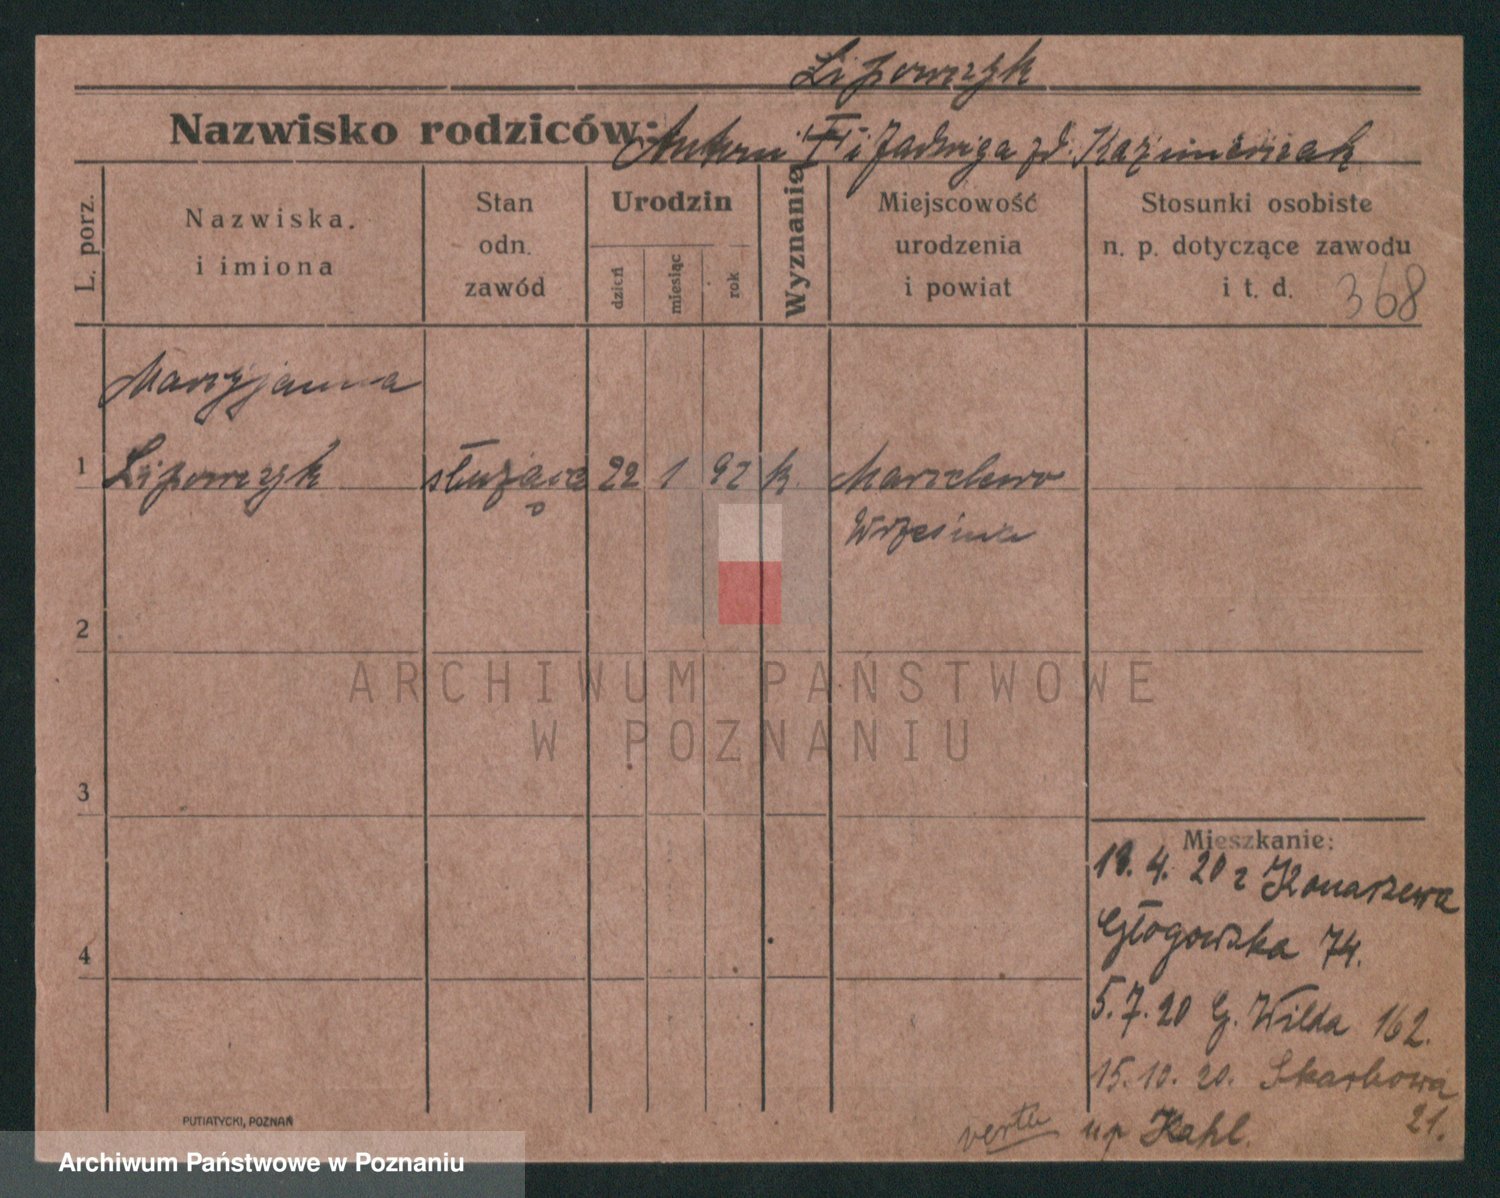 Lipowczyk
Nazwisko rodziców: Antoni i Jadwiga zd. Kaźmierczak
L. porz.
Nazwiska.
i imiona
Stan
odn.
zawód
Urodzin
dzień
miesiąc
rok
Wyznanie
Miejscowość
urodzenia
i powiat
Stosunki osobiste
n. p. dotyczące zawodu
i t. d.
368
Maryjanna
1 Lipowczyk służąca 22 1 92 k. Marzelewo
Września
2
ARCHIWUM PAŃSTWOWE
W POZNANIU
3
Mieszkanie:
18. 4. 20 z Konarzewa
Głogowska 74.
4
5. 7. 20 G. Wilda 162.
15. 10. 20. Skarbowa
21.
up Kahl.
verte
PUTIATYCKI, POZNAŃ
Archiwum Państwowe w Poznaniu